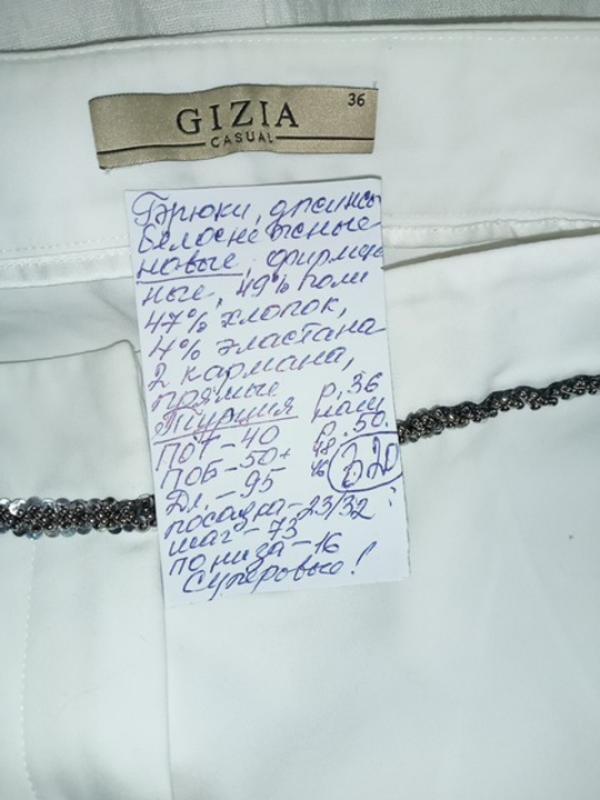 36
GIZIA
CASUAL
Брюки, джинсы
белоснежные
новые, фирмен
ные, 49% поли
47% хлопок,
4% эластана
2 кармана,
прямые р. 36
Турция наш
ПОТ-40 р. 50.
ПОБ-50+ 48 320
Дл. - 95 46
посадка-23/32
шаг-73
по низа-16
Суперовые!